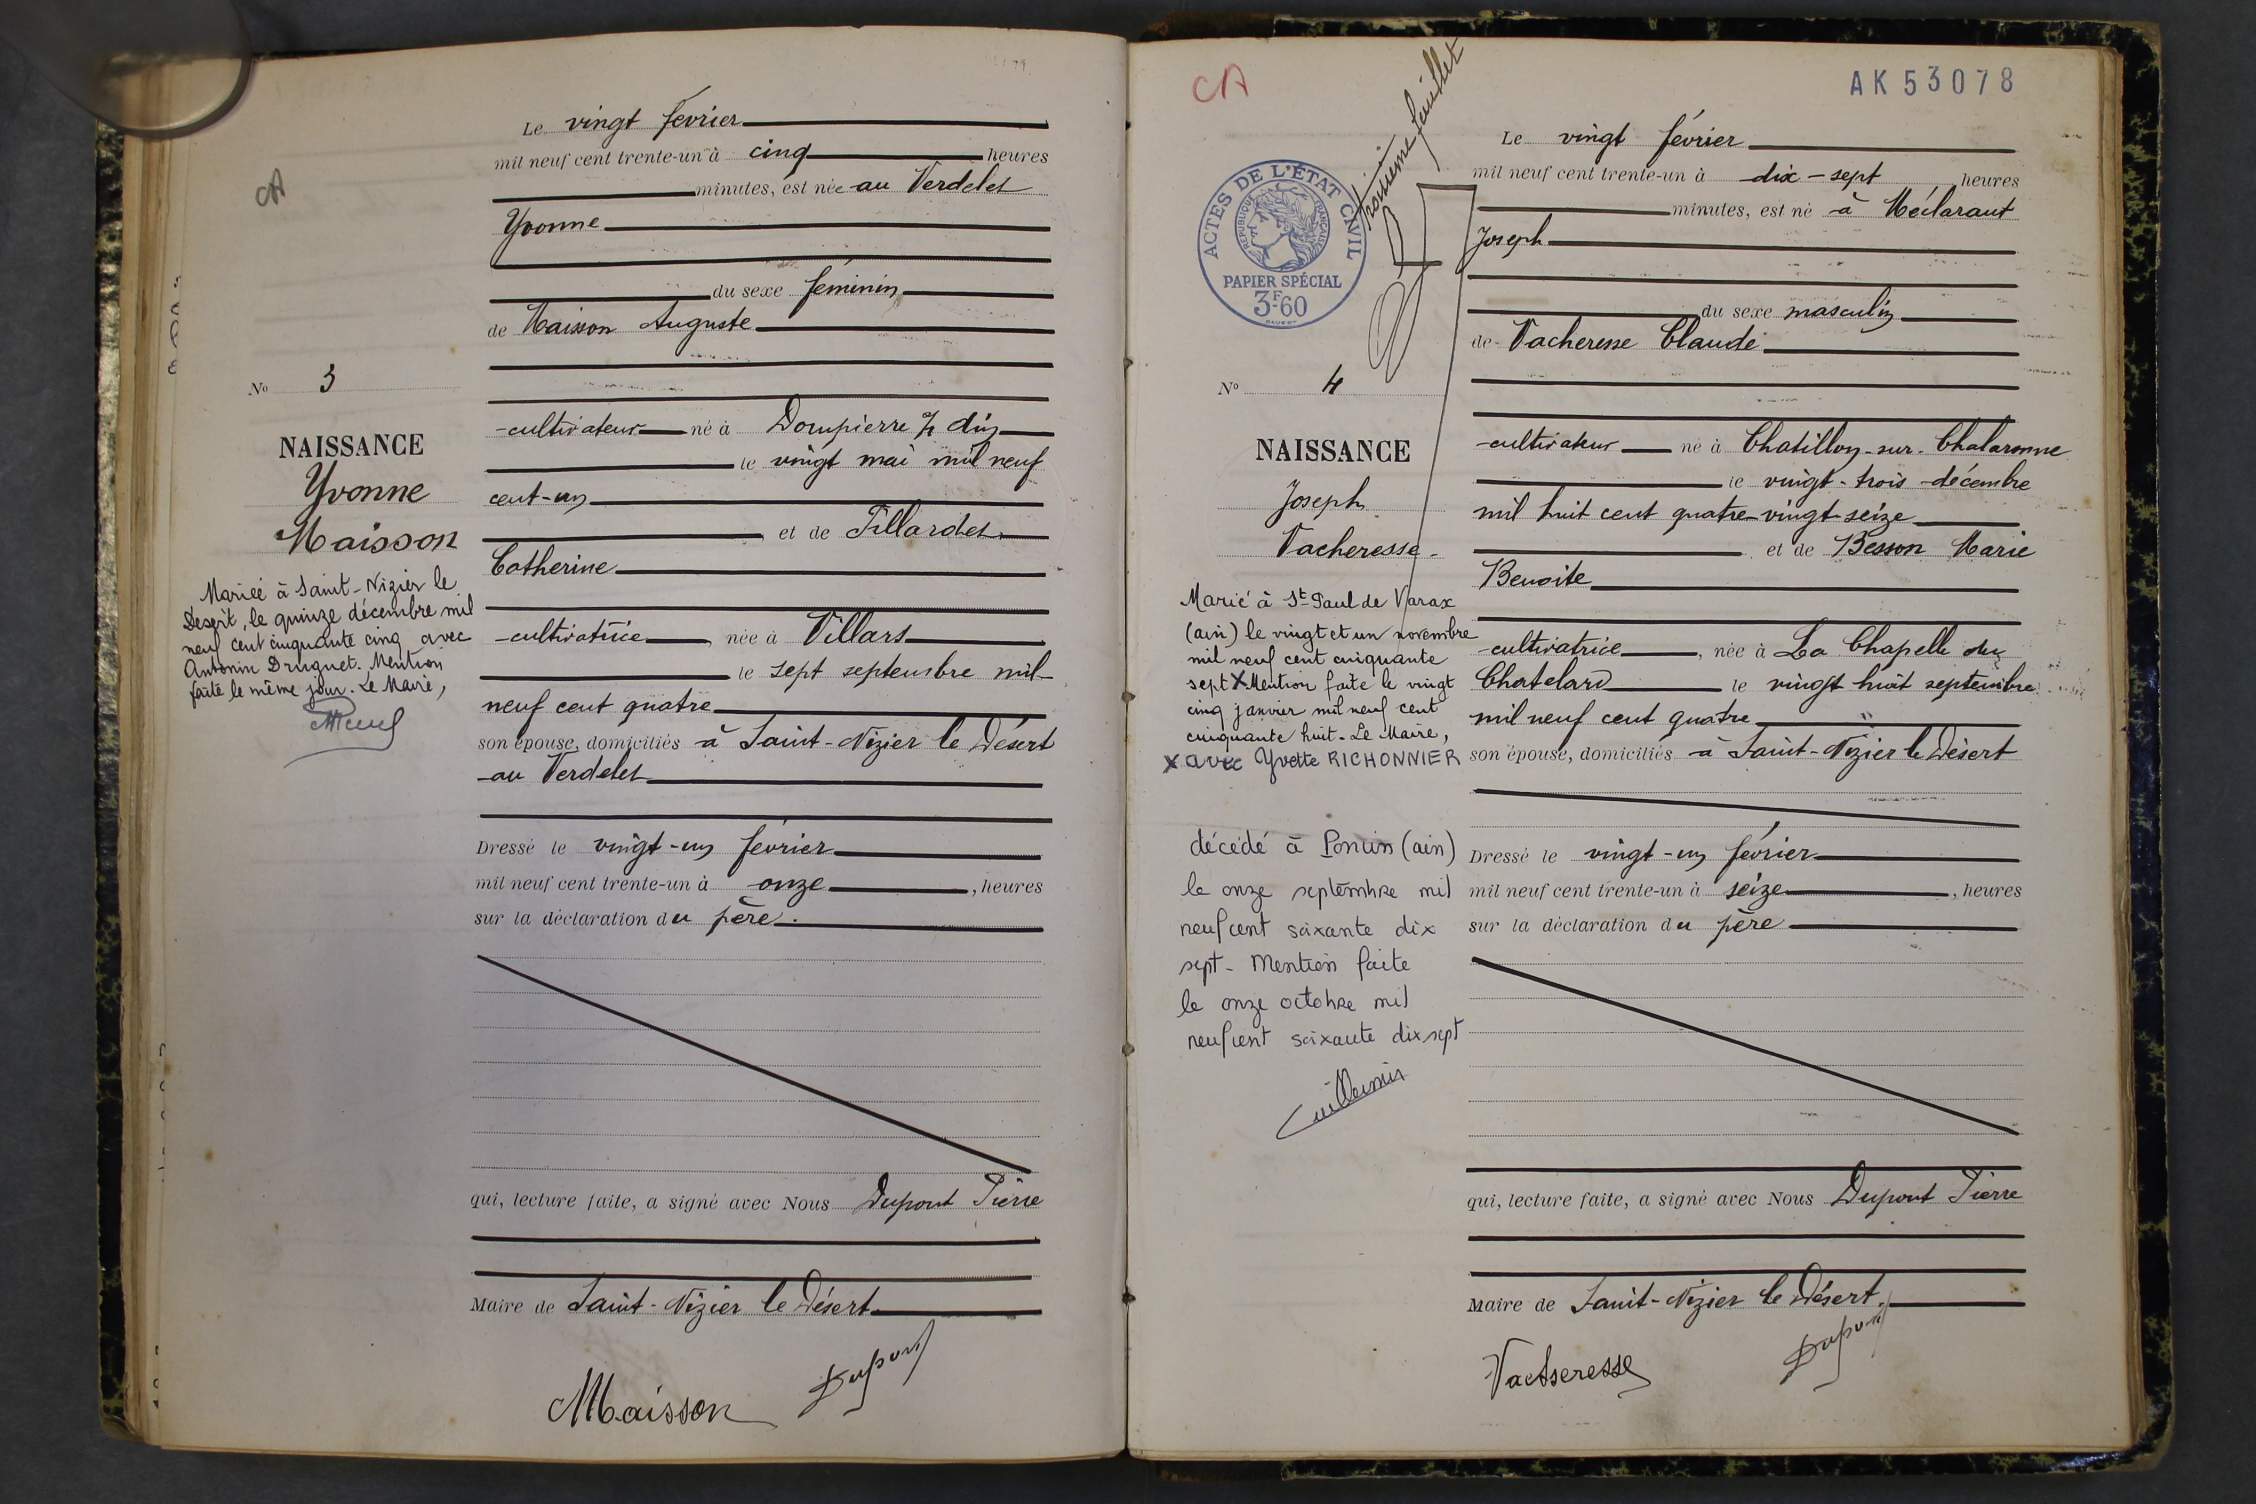 CA
Le vingt février
mil neuf cent trente-un à cinq heures
minutes, est née au Verdelet
Yvonne
du sexe féminin
de Maisson Auguste
No 3
cultivateur né à Dompierre
le vingt mai mil neuf
cent-un
et de Tillardet
Catherine
cultivatrice, née à Villars
le sept septembre mil
neuf cent quatre
son épouse, domiciliés à Saint-Nizier le Désert
au Verdelet
Dressé le vingt-un février
mil neuf cent trente-un à onze, heures
sur la déclaration du père.
qui, lecture faite, a signé avec Nous Dupont Pierre
Maire de Saint-Nizier le Désert
Maisson Dupont
NAISSANCE
Yvonne
Maisson
Mariée à Saint-Nizier le
Desert, le quinze décembre mil
neuf cent cinquante cinq avec
Antonin Druguet. Mention
faite le même jour. Le Maire,
CA
AK 53078
troisième feuillet
ACTES DE L'ÉTAT CIVIL
RÉPUBLIQUE FRANÇAISE
PAPIER SPÉCIAL
3F60
Le vingt février
mil neuf cent trente-un à dix-sept heures
minutes, est né à Méclaraut
Joseph
du sexe masculin
de Vacheresse Claude
No 4
cultivateur né à Chatillon-sur-Chalaronne
le vingt-trois décembre
mil huit cent quatre-vingt-seize
et de Besson Marie
Benoite
cultivatrice, née à La Chapelle du
Chatelard le vingt huit septembre
mil neuf cent quatre
son épouse, domiciliés à Saint-Nizier le Désert
Dressé le vingt-un février
mil neuf cent trente-un à seize, heures
sur la déclaration du père
qui, lecture faite, a signé avec Nous Dupont Pierre
Maire de Saint-Nizier le Désert.
Vacheresse Dupont
NAISSANCE
Joseph
Vacheresse
Marié à St-Paul de Varax
(ain) le vingt et un novembre
mil neuf cent cinquante
sept X Mention faite le vingt
cinq janvier mil neuf cent
cinquante huit. Le Maire,
X avec Yvette RICHONNIER
décédé à Poncin (ain)
le onze septembre mil
neuf cent soixante dix
sept - Mention faite
le onze octobre mil
neuf cent soixante dix sept
Guillemin